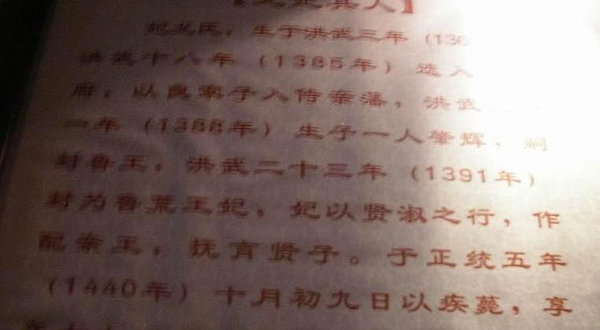 妃其人】
妃戈氏，生于洪武三年（136
洪武十八年（1385年）选入
府，以良家子入侍亲藩，洪武
一年（1388年）生子一人肇辉，嗣
封鲁王，洪武二十三年（1391年）
封为鲁荒王妃，妃以贤淑之行，作
配亲王，抚育贤子。于正统五年
（1440年）十月初九日以疾薨，享